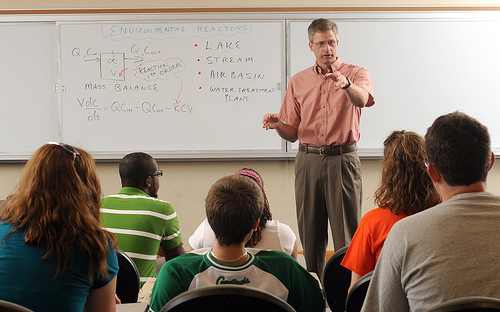 ENVIRONMENTAL REACTORS
Q, Cin
Q, Cout
V
REACTION
IN ORDER
MASS BALANCE
Vdc/dt = QCin - QCout - KCV
• LAKE
• STREAM
• AIR BASIN
• WATER TREATMENT
PLANT